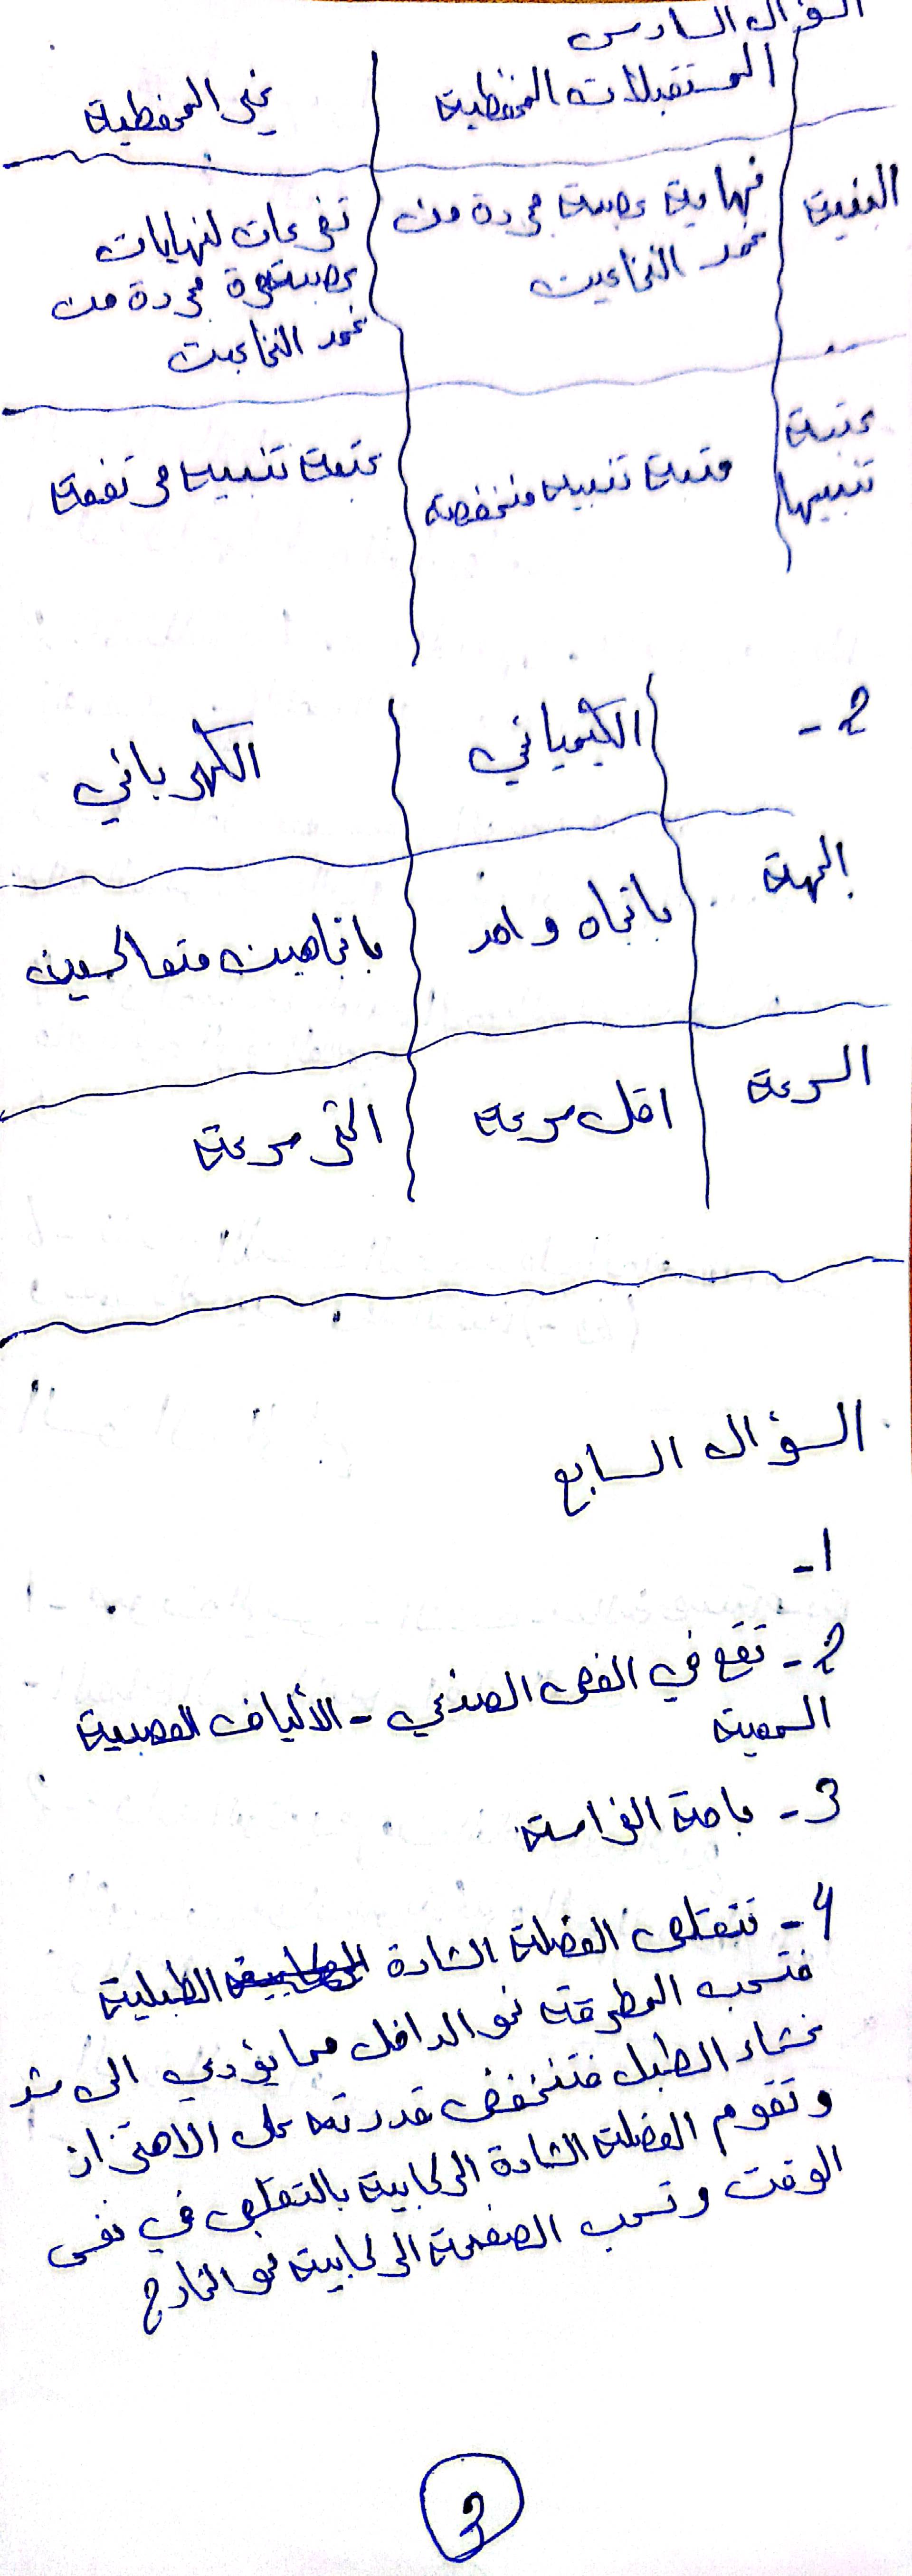 السؤال السادس
المستقبلات المحفظية غير المحفظية
البنية نهاية عصبية مجردة من تفرعات لنهايات
غمد النخاعين عصبية مجردة من
غمد النخاعين
عتبة عتبة تنبيه منخفضة عتبة تنبيه مرتفعة
تنبيهها
2 - الكيميائي الكهربائي
الجهة باتجاه واحد باتجاهين متعاكسين
السرعة اقل سرعة اكثر سرعة
السؤال السابع
1-
2- تقع في الفص الصدغي - الألياف العصبية
السمعية
3- باحة الفراسة
4- تتقلص العضلة الشادة الطبلية
فتسحب المطرقة نحو الداخل مما يؤدي الى شد
غشاء الطبل فتنخفض قدرته على الاهتزاز
وتقوم العضلة الشادة الركابية بالتقلص في نفس
الوقت وتسحب الصفيحة الركابية نحو الخارج
3